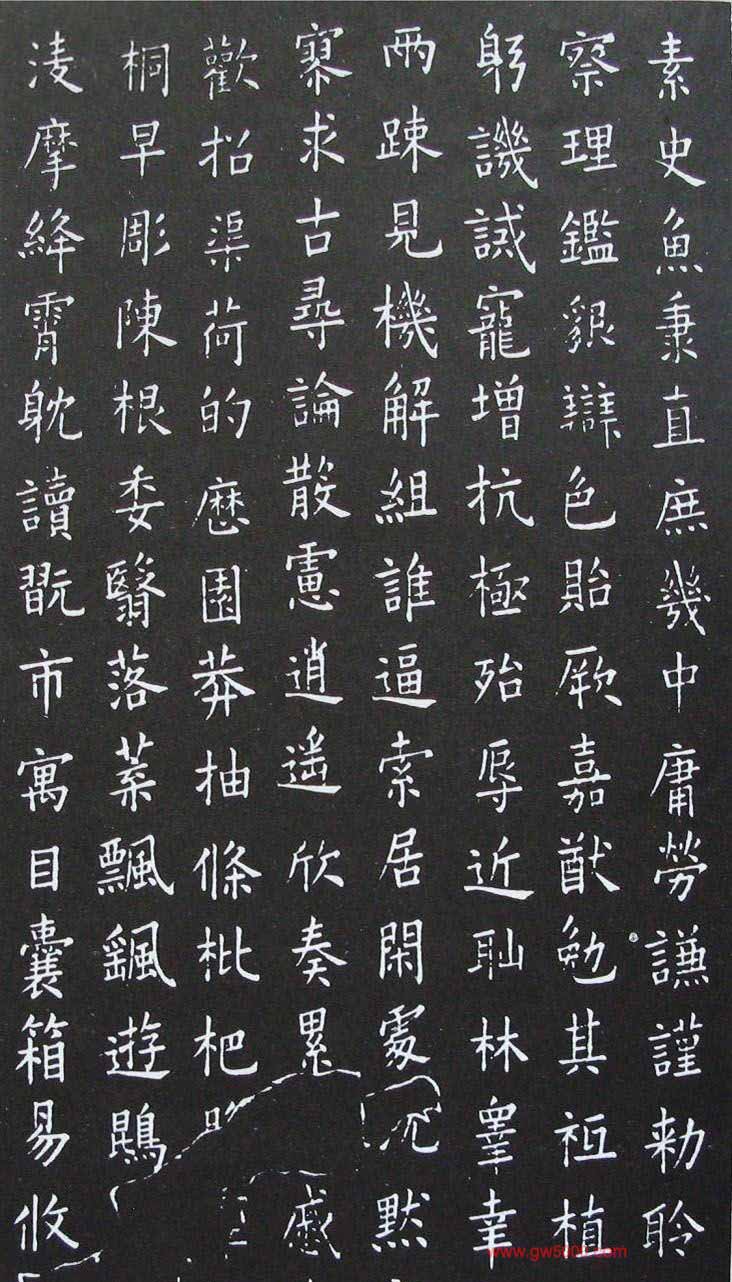 素史魚秉直庶幾中庸勞謙謹勅聆
察理鑑貌辯色貽厥嘉猷勉其祗植
躬譏誡寵增抗極殆辱近耻林睾幸
兩踈見機解組誰逼索居閑處沉默
寥求古尋論散慮逍遙欣奏累慼
歡招渠荷的歷園莽抽條枇杷
桐早彫陳根委翳落葉飄颻遊鵾
淩摩絳霄躭讀翫市寓目囊箱易攸